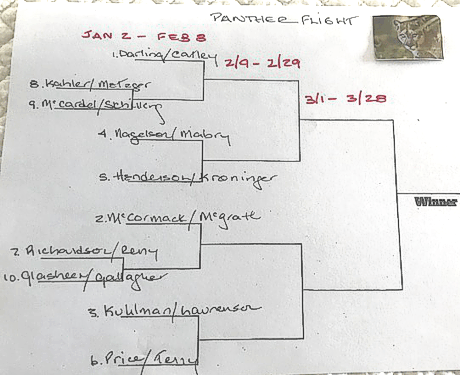 PANTHER FLIGHT
JAN 2 - FEB 8
1. Darling/Carley
2/9 - 2/29
8. Kahler/Metzger
9. McCardel/
3/1 - 3/28
4. Nagelson/Mabry
5. Henderson/Kroninger
Winner
2. McCormack/McGrath
7. Richardson/
10. Glasheen/Gallagher
3. Kuhlman/Laurenson
6. Price/Terry